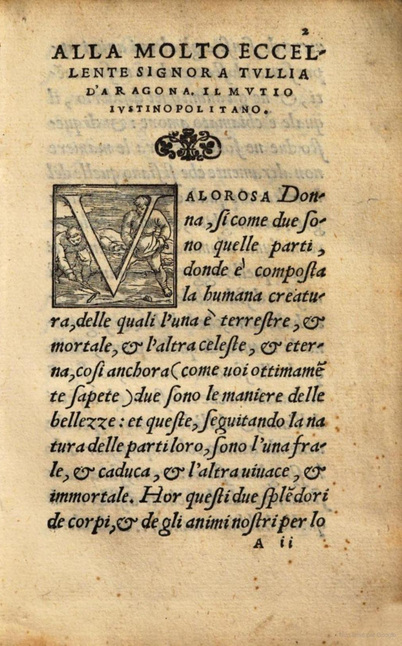 2
ALLA MOLTO ECCEL-
LENTE SIGNORA TVLLIA
D'ARAGONA. IL MVTIO
IVSTINOPOLITANO.
VALOROSA Don-
na, si come due so-
no quelle parti,
donde e` composta
la humana creatu-
ra, delle quali l'una è terrestre, &
mortale, & l'altra celeste, & eter-
na, cosi anchora (come uoi ottimamē
te sapete) due sono le maniere delle
bellezze: et queste, seguitando la na
tura delle parti loro, sono l'una fra-
le, & caduca, & l'altra uiuace, &
immortale. Hor questi due splēdori
de corpi, & de gli animi nostri per lo
A ii